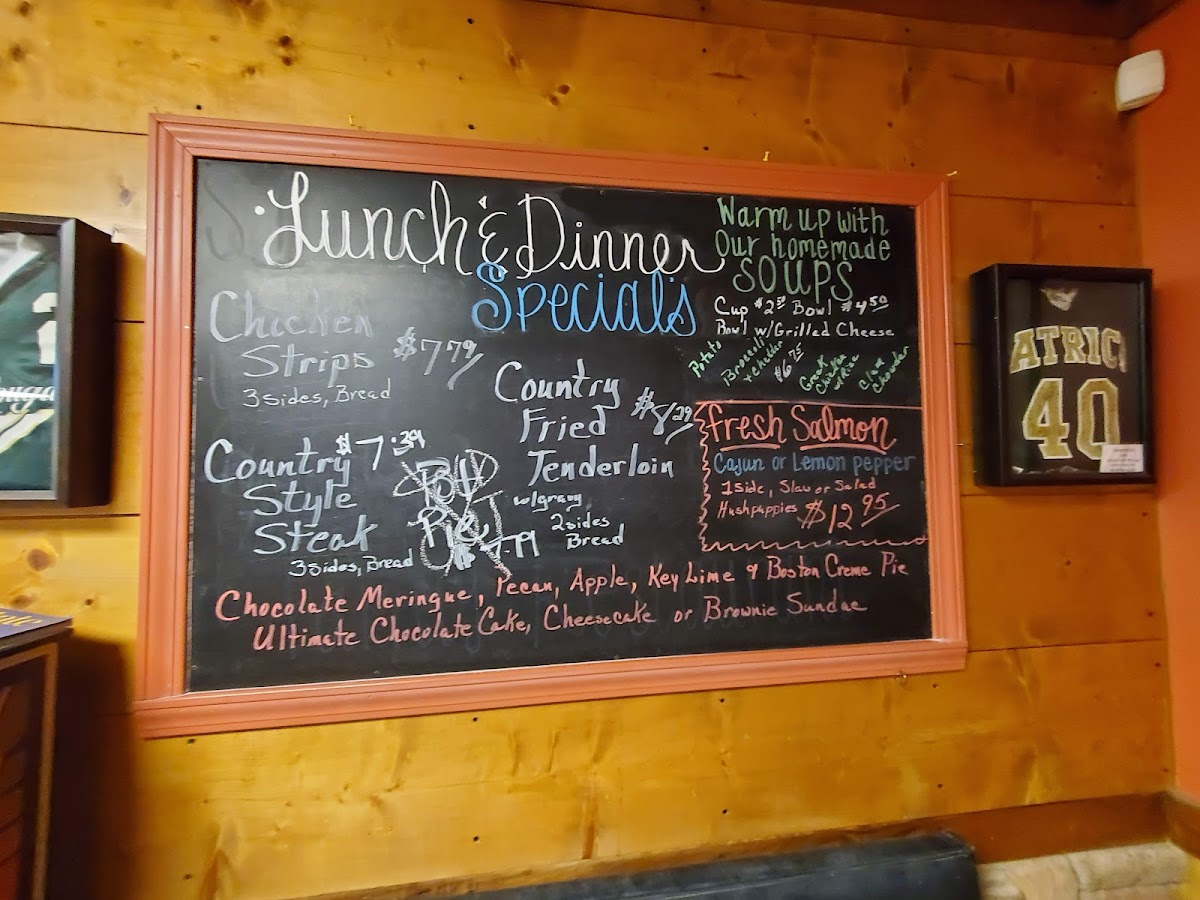 Lunch & Dinner
Specials
Chicken
Strips $7.79/
3 Sides, Bread
Country $7.39
Style
Steak
3 Sides, Bread
Pot
Pie
$7.79
Country
Fried $8/29
Tenderloin
w/gravy
2 sides
Bread
Warm up with
Our homemade
SOUPS
Cup $2.50 Bowl $4.50
Bowl w/Grilled Cheese
$6.75
Potato
Broccoli
+ Cheddar
Chicken
Clam
Chowder
Fresh Salmon
Cajun or Lemon pepper
1 Side, Slaw or Salad
Hushpuppies $12.95
Chocolate Meringue, Pecan, Apple, Key Lime & Boston Creme Pie
Ultimate Chocolate Cake, Cheesecake or Brownie Sundae
ATRIC
40